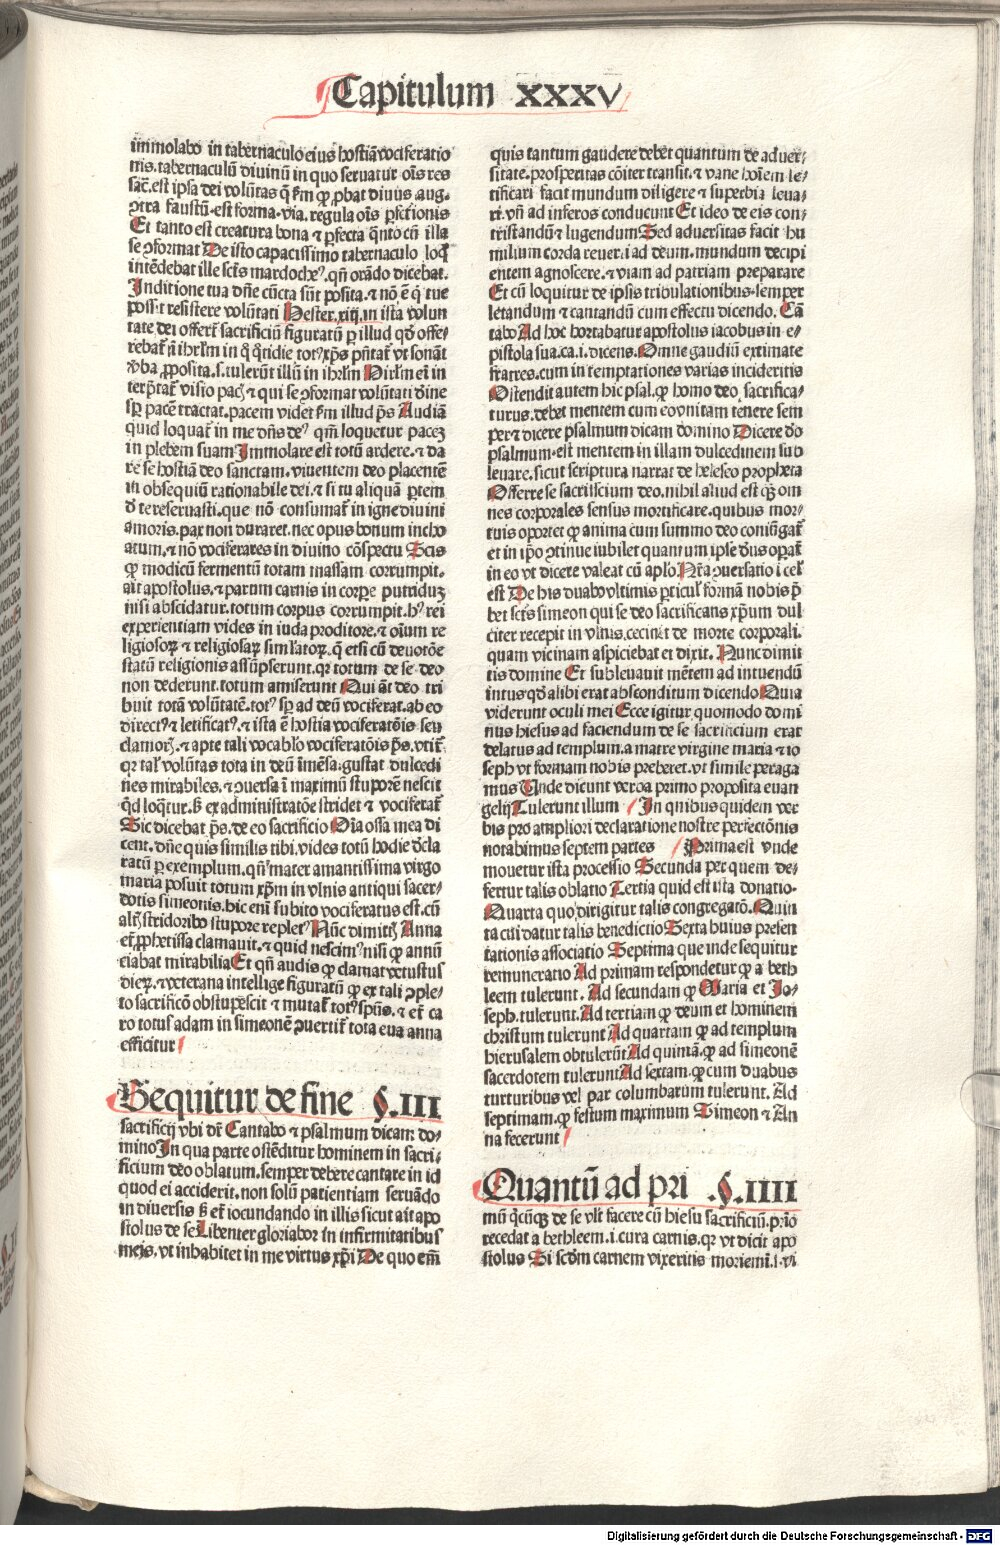 Capitulum XXXV
immolabo in tabernaculo eius hostiā vociferatio
nis. tabernaculū divinū in quo seruatur oīs res
sac̄. est ipsa dei volūtas q̄ fm ꝙ ꝓbat diuus aug.
ꝯtra faustū. est forma. via. regula oīs ꝑfectionis
Et tanto est creatura bona ⁊ ꝑfecta q̄nto cū illa
se ꝯformat De isto capacissimo tabernaculo loq̄
intēdebat ille scīs mardocheꝰ. qn̄ orādo dicebat.
In ditione tua dn̄e cūcta sūt posita. ⁊ nō ē q̄ tue
possit resistere volūtati Hester. xiij. in ista volun
tate dei offert̄ sacrificiū figuratū ꝑ illud qd̄ offe-
rebat̄ ī ihrl̄m in q̄ q̄tidie totꝰ xp̄s p̄ntat̄ vt sonāt
v̄ba ꝓposita. s. tulerūt illū in ihrl̄m Hirl̄m eī in
terp̄tat̄ visio pacꝭ ⁊ qui se ꝯformat volūtati diuine
sp̄ pacē tractat. pacem videt fm illud p̄s Audiā
quid loquat̄ in me dn̄s deꝰ qm̄ loquetur paceꝫ
in plebem suam Immolare est totū ardere. ⁊ da
re se hostiā deo sanctam. viuentem deo placentē
in obsequiū rationabile dei. ⁊ si tu aliquā ꝑtem
d̄ te reseruasti. que nō consumat̄ in igne diuini
amoris. pax non duraret. nec opus bonum incho
atum. ⁊ nō vociferares in diuino cōspectu Scis
ꝙ modicū fermentū totam massam corrumpit.
ait apostolus. ⁊ parum carnis in corpe putriduꝫ
nisi abscidatur. totum corpus corrumpit. hꝰ rei
experientiam vides in iuda proditore. ⁊ oīum re
ligiosoꝝ ⁊ religiosaꝝ simlatoꝝ. q̄ etsi cū deuotōe
statū religionis assūpserunt. qꝛ totum de se deo
non dederunt. totum amiserunt Qui āt deo tri
buit totā volūtatē. totꝰ sp̄ ad deū vociferat. ab eo
directꝰ ⁊ letificatꝰ. ⁊ ista ē hostia vociferatōis seu
clamorꝭ. ⁊ apte tali vocablo vociferatōis p̄s. vtit̄.
qꝛ tal' volūtas tota in deū īmēsa. gustat dulcedi
nes mirabiles. ⁊ ꝯuersa ī maximū stuporē nescit
qd̄ loq̄tur. sꝫ ex administratōe stridet ⁊ vociferat̄
Sic dicebat p̄s. de eo sacrificio Oīa ossa mea di
cent. dn̄e quis similis tibi. vides totū hodie dcla
ratū ꝑ exemplum. qn̄ mater amantissima virgo
maria posuit totum xp̄m in vlnis antiqui sacer-
dotis simeonis. hic enī subito vociferatus est. cū
altꝭ stridoribꝰ stupore repletꝰ Nūc dimittꝭ Anna
et̄ ꝓphetissa clamauit. ⁊ quid nescimꝰ nisi ꝙ annū
ciabat mirabilia Et qn̄ audis ꝙ clamat vetustus
dieꝝ. ⁊ veterana intellige figuratū ꝙ ex tali ꝯple-
to sacrificō obstupescit ⁊ mutat̄ totꝰ spūs. ⁊ et̄ ca
ro totus adam in simeonē ꝯuertit̄ tota eua anna
efficitur
Sequitur de fine §. III
sacrificij vbi dr̄ Cantabo ⁊ psalmum dicam do-
mino In qua parte ostēditur hominem in sacri-
ficium deo oblatum. semper debere cantare in id
quod ei acciderit. non solū patientiam seruādo
in diuersis sꝫ et̄ iocundando in illis sicut ait apo
stolus de se Libenter gloriabor in infirmitatibus
meis. vt inhabitet in me virtus xp̄i De quo em̄
quis tantum gaudere debet quantum de aduer-
sitate. prosperitas cōiter transit. ⁊ vane hoīem le-
tificari facit mundum diligere ⁊ superbia leua-
ri. vn̄ ad inferos conducunt Et ideo de eis con-
tristandū ⁊ lugendum Sed aduersitas facit hu
milium corda reuerti ad deum. mundum decipi
entem agnoscere. ⁊ viam ad patriam preparare
Et cū loquitur de ipsis tribulationibus. semper
letandum ⁊ cantandū cum effectu dicendo. Cā
tabo Ad hoc hortabatur apostolus iacobus in e-
pistola sua. ca. i. dicens. Omne gaudiū extimate
fratres. cum in temptationes varias incideritis
Ostendit autem hic psal. ꝙ homo deo sacrifica-
turus. debet mentem cum eo vnitam tenere sem
per ⁊ dicere psalmum dicam domino Dicere do
psalmum. est mentem in illam dulcedinem sub
leuare. sicut scriptura narrat de heleseo propheta
Offerre se sacrificium deo. nihil aliud est qꝫ om
nes corporales sensus mortificare. quibus mor-
tuis oportet ꝙ anima cum summo deo coniūgat̄
et in ip̄o ꝯtinue iubilet quantum ipse dn̄s oꝑat̄
in eo vt dicere valeat cū aplo Nr̄a ꝯuersatio ī cel'
est De his duabꝰ vltimis ꝑticul' formā nobis p̄
bet scīs simeon qui se deo sacrificans xp̄um dul
citer recepit in vlnis. cecinit de morte corporali.
quam vicinam aspiciebat et dixit. Nunc dimit
tis domine Et subleuauit mētem ad intuendū
intus qd̄ alibi erat absconditum dicendo Quia
viderunt oculi mei Ecce igitur quomodo domi
nus hiesus ad faciendum de se sacrificium erat
delatus ad templum. a matre virgine maria ⁊ io
seph vt formam nobis preberet. vt simile peraga
mus Unde dicunt verba primo proposita euan
gelij Tulerunt illum In quibus quidem ver
bis pro ampliori declaratione nostre perfectōnis
notabimus septem partes Prima est vnde
mouetur ista processio Secunda per quem de-
fertur talis oblatio Tertia quid est ista donatio.
Quarta quo dirigitur talis congregatō. Quin
ta cui datur talis benedictio Sexta huius presen
tationis associatio Septima que inde sequitur
remuneratio Ad primam respondetur ꝙ a beth
leem tulerunt. Ad secundam ꝙ Maria et Jo-
seph. tulerunt. Ad tertiam ꝙ deum et hominem
christum tulerunt Ad quartam ꝙ ad templum
hierusalem obtulerūt Ad quintā. ꝙ ad simeonē
sacerdotem tulerunt Ad sextam. ꝙ cum duabus
turturibus vel par columbarum tulerunt. Ad
septimam. ꝙ festum maximum Simeon ⁊ An
na fecerunt
Quantū ad pri §. IIII
mū q̄cūqꝫ de se vlt̄ facere cū hiesu sacrificiū. prīo
recedat a bethleem. i. cura carnis. qꝛ vt dicit apo
stolus Si scdm carnem vixeritis moriemī. i. vi
Digitalisierung gefördert durch die Deutsche Forschungsgemeinschaft - DFG